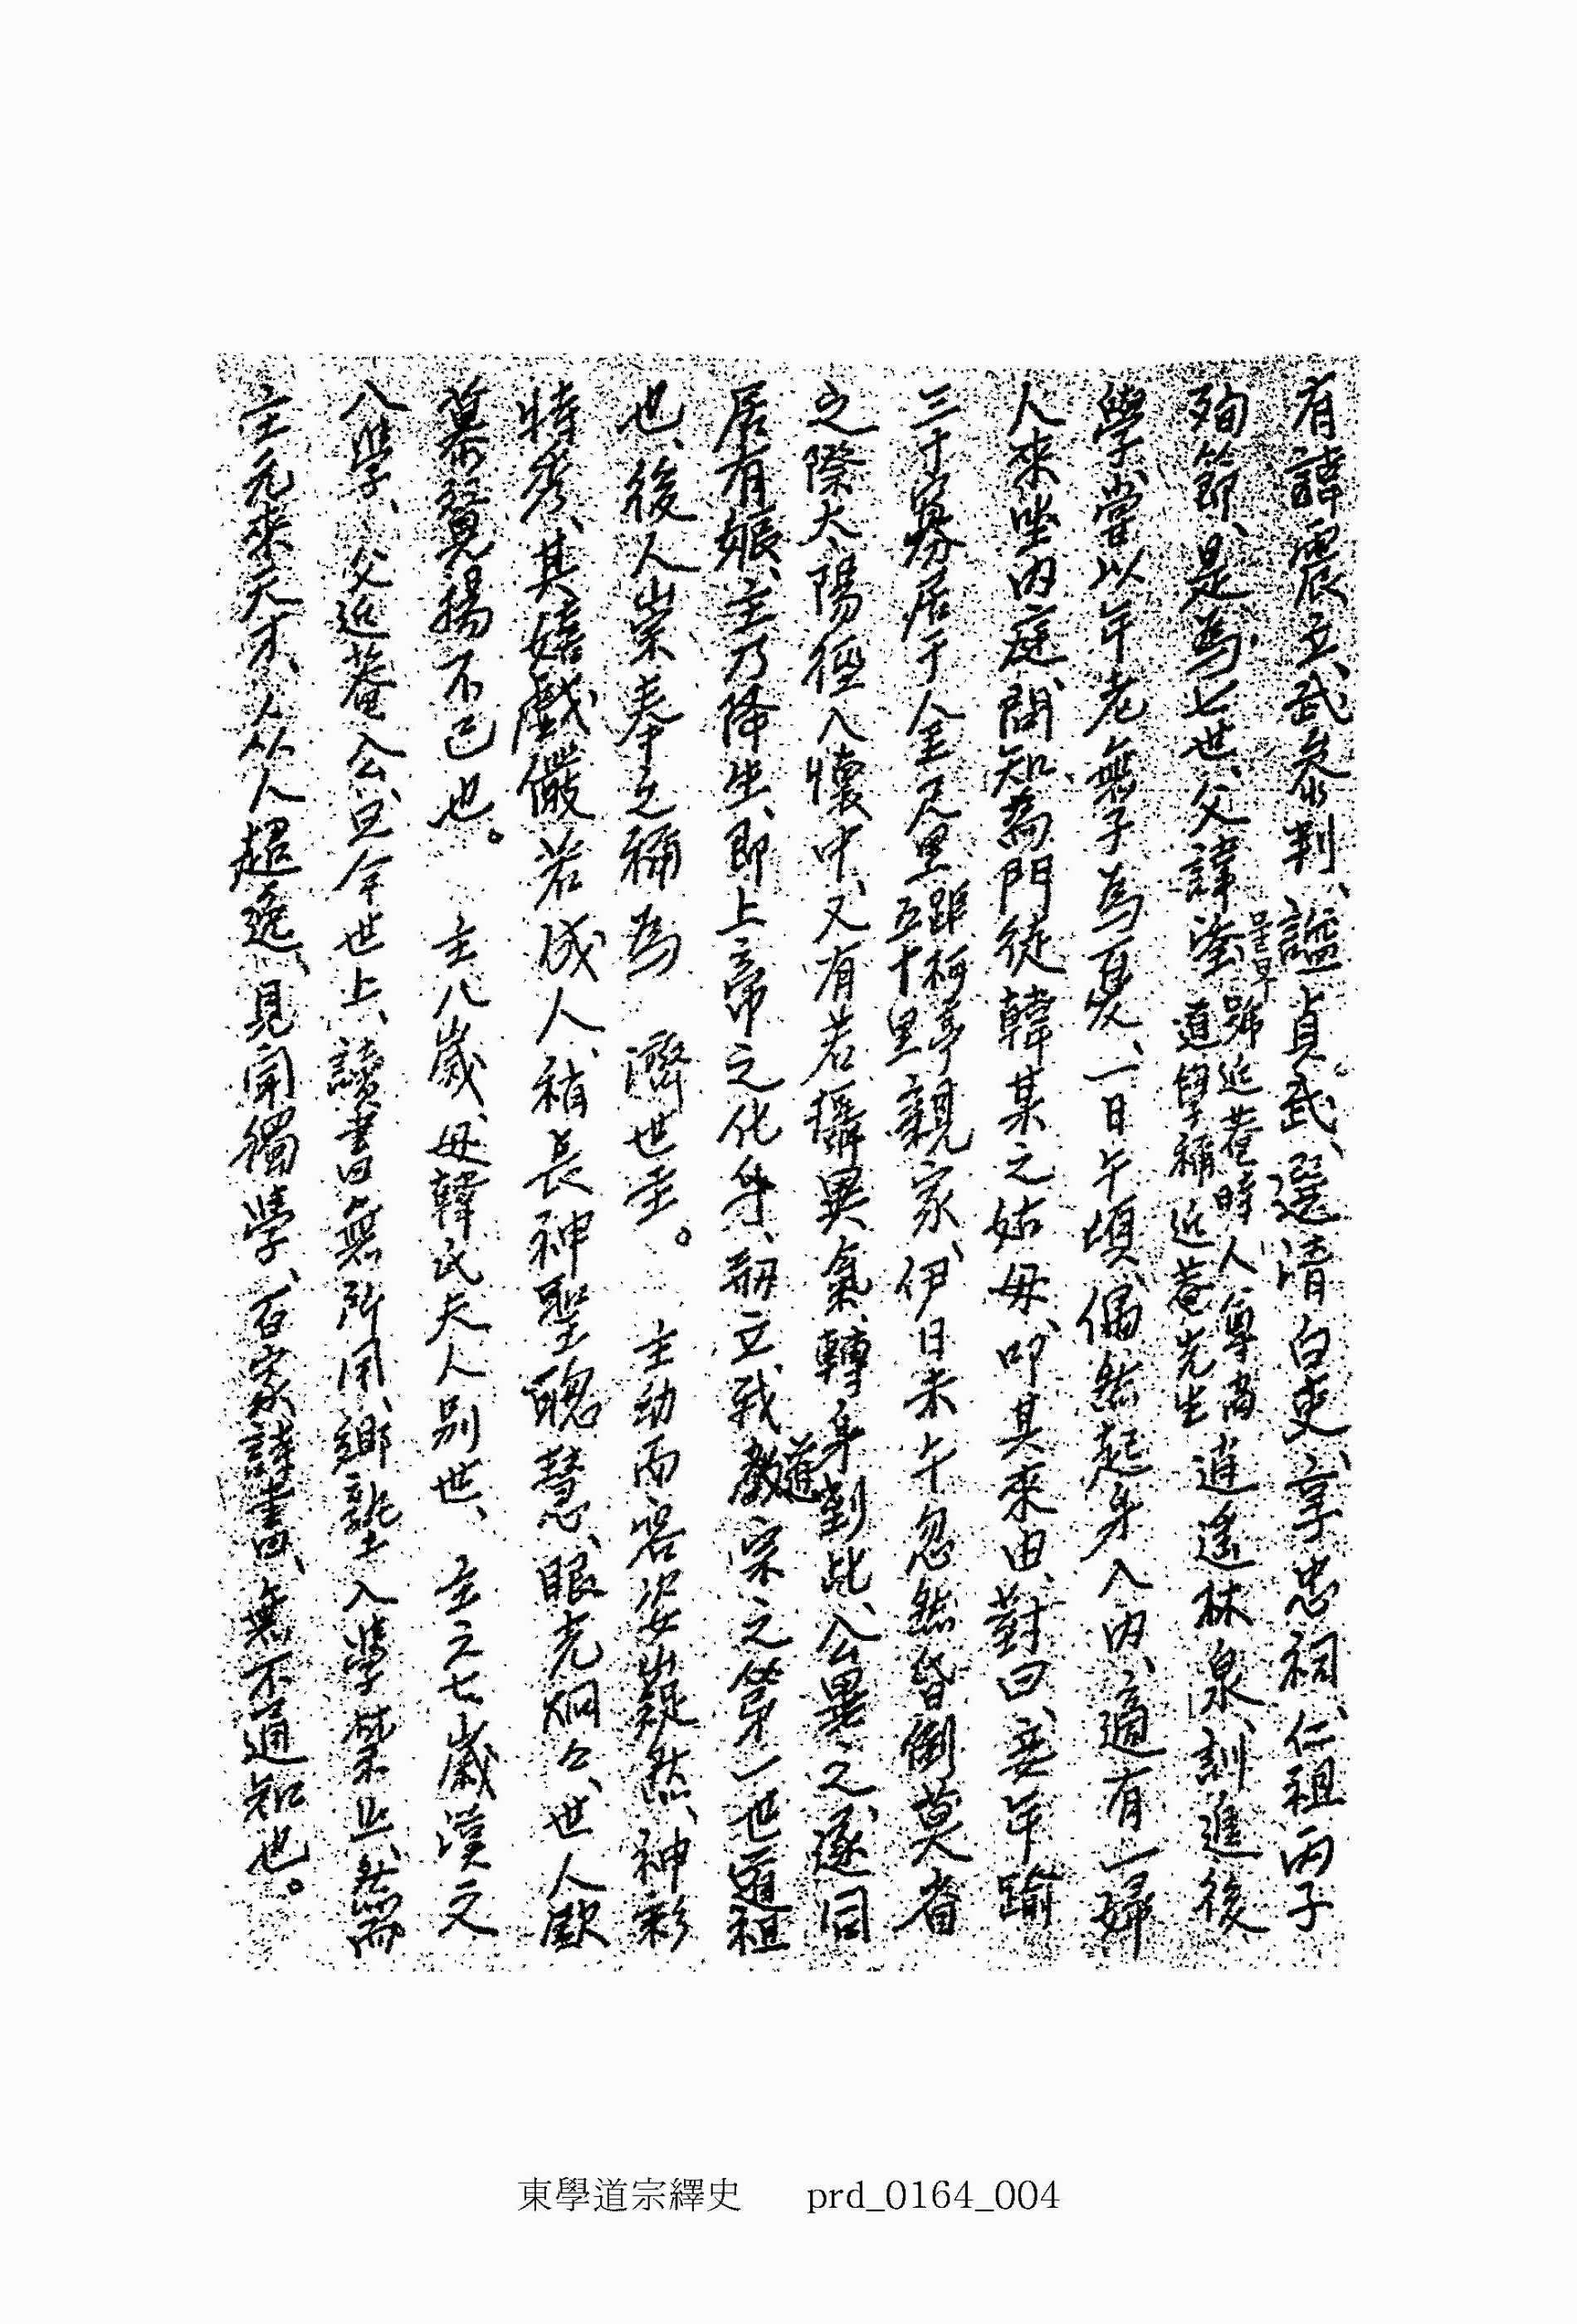 有諱震立、武叅判、諡貞武、選清白吏、享忠祠、仁祖丙子
殉節、是為七世、父諱鋈 號近菴時人尊者 道學稱近菴先生 逍遙林泉、訓進後
學、甞以年老無子為憂、一日午頃、偶然起身入内、適有一婦
人來坐内庭、問知為門徒韓某之姑母、叩其來由、對曰、妾年踰
三十寡居于金尺里 距柯亭 五十里 親家、伊日未午忽然昏倒莫省
之際太陽徑入懷中、又有若攝異氣、轉身到此、公異之、遂同
居有娠、主乃降生、即上帝之化身、刱立我道教宗之第一世道祖
也、後人崇奉之稱為 濟世主。 主幼而容姿嶷然、神彩
特秀、其嬉戯儼若成人、稍長神聖聰慧、眼光炯々、世人歆
慕贊揚不已也。 主八歲、母韓氏夫人别世、 主之七歲漢文
入學、父近菴公、曰今世上、讀書無所用、鄉塾入學禁止、然而
主元來天才、從人超逸、見聞獨學、百家諸書、無不通知也。
東學道宗繹史 prd_0164_004